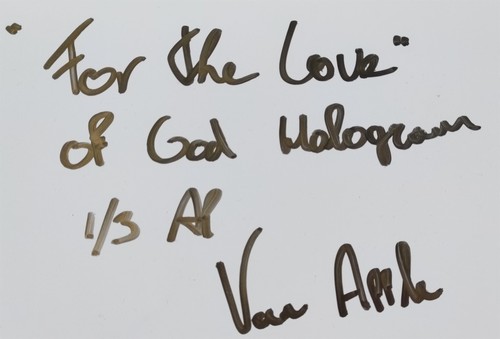 "For the Love"
of God Hologram
1/3 AP
Van Apple